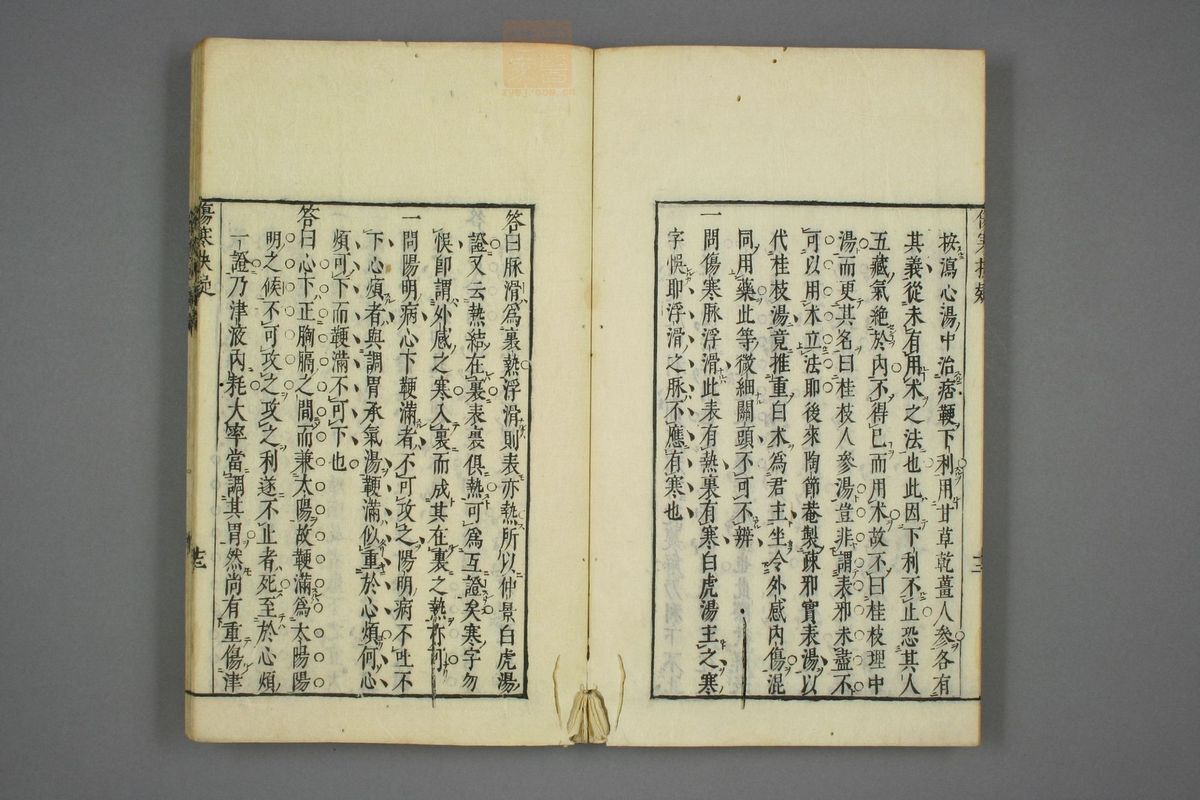 按瀉心湯中治痞鞕下利用甘草乾薑人參各有
其義從未有用朮之法也此因下利不止恐其人
五藏氣絕於內不得已而用朮故不曰桂枝理中
湯而更其名曰桂枝人參湯豈非謂表邪未盡不
可以用朮立法即後來陶節菴製疎邪實表湯以
代桂枝湯竟推重白朮爲君主坐令外感內傷混
同用藥此等微細關頭不可不辨
一問傷寒脉浮滑此表有熱裏有寒白虎湯主之寒
字悞耶浮滑之脉不應有寒也
答曰脉滑爲裏熱浮滑則表亦熱所以仲景白虎湯
證又云熱結在裏表裏俱熱可爲互證矣寒字勿
悞即謂外感之寒入裏而成其在裏之熱亦可
一問陽明病心下鞕滿者不可攻之陽明病不吐不
下心煩者與調胃承氣湯鞕滿似重於心煩何心
煩可下而鞕滿不可下也
答曰心下正胸膈之間而兼太陽故鞕滿爲太陽陽
明之候不可攻之攻之利遂不止者死至於心煩
一證乃津液內耗大率當調其胃然尚有重傷津
傷寒抉疑
十二